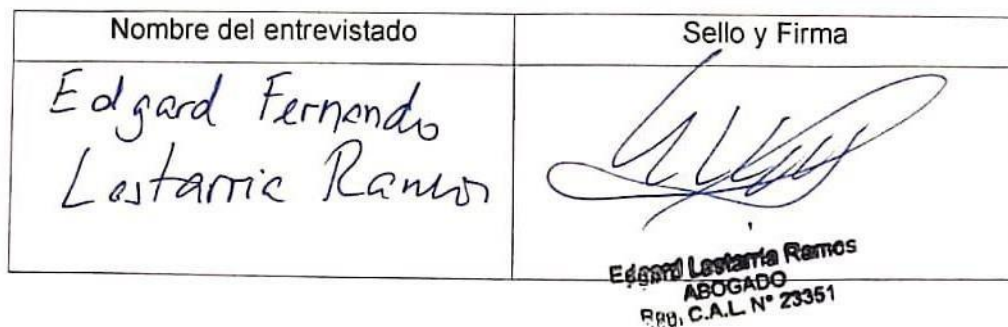 Nombre del entrevistado
Sello y Firma
Edgard Fernando
Lastarria Ramos
Edgard Lastarria Ramos
ABOGADO
Reg. C.A.L. N° 23351